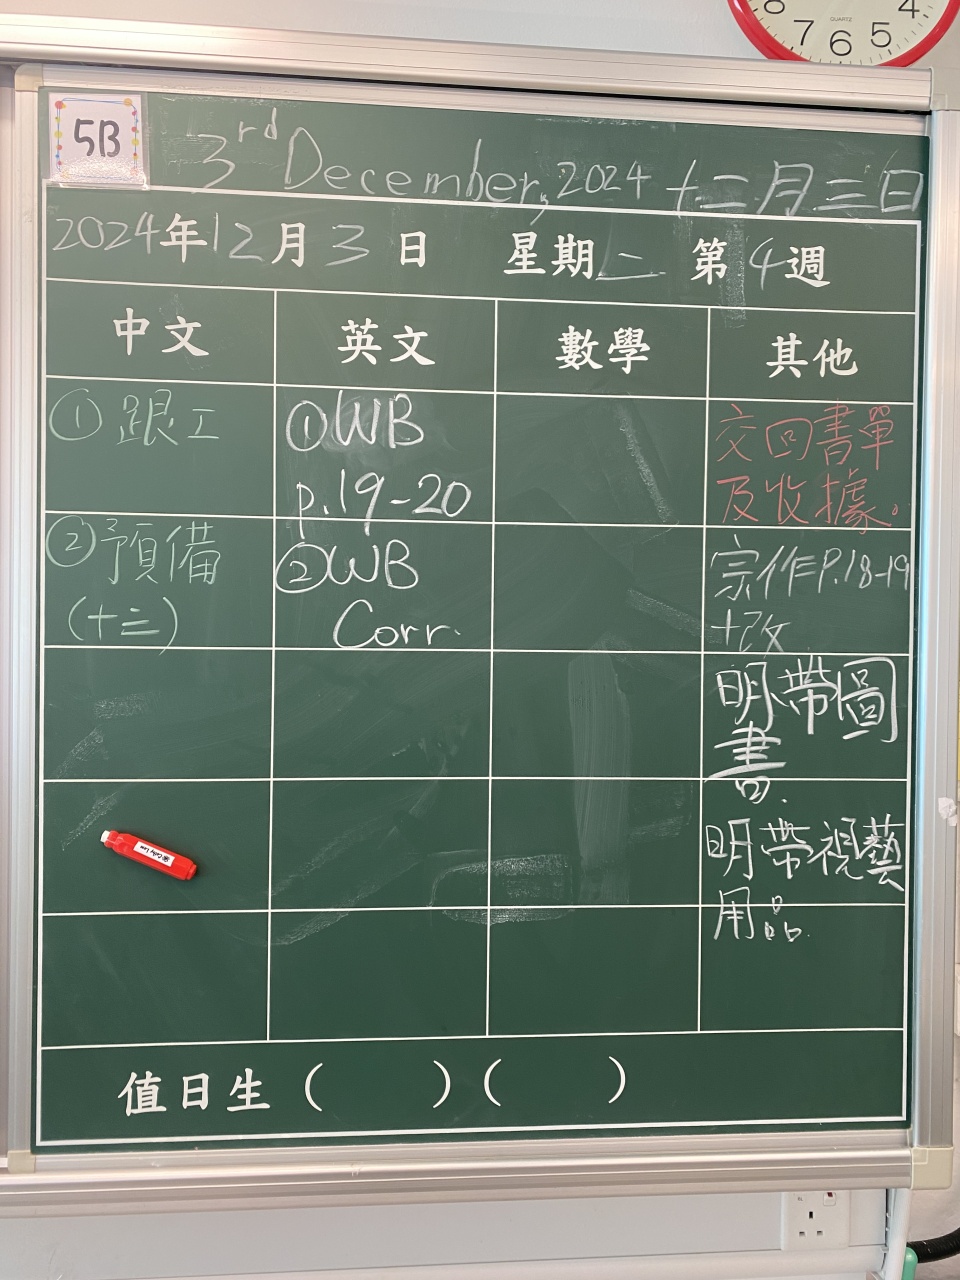 8 7 6 5 4
QUARTZ
5B
3rd December, 2024 十二月三日
2024年12月3日 星期二 第4週
中文 英文 數學 其他
①跟工
②預備
(十三)
①WB
p.19-20
②WB
Corr.
交回書單
及收據。
宗作P.18-19
+改
明帶圖
書.
明帶視藝
用品.
值日生 ( ) ( )